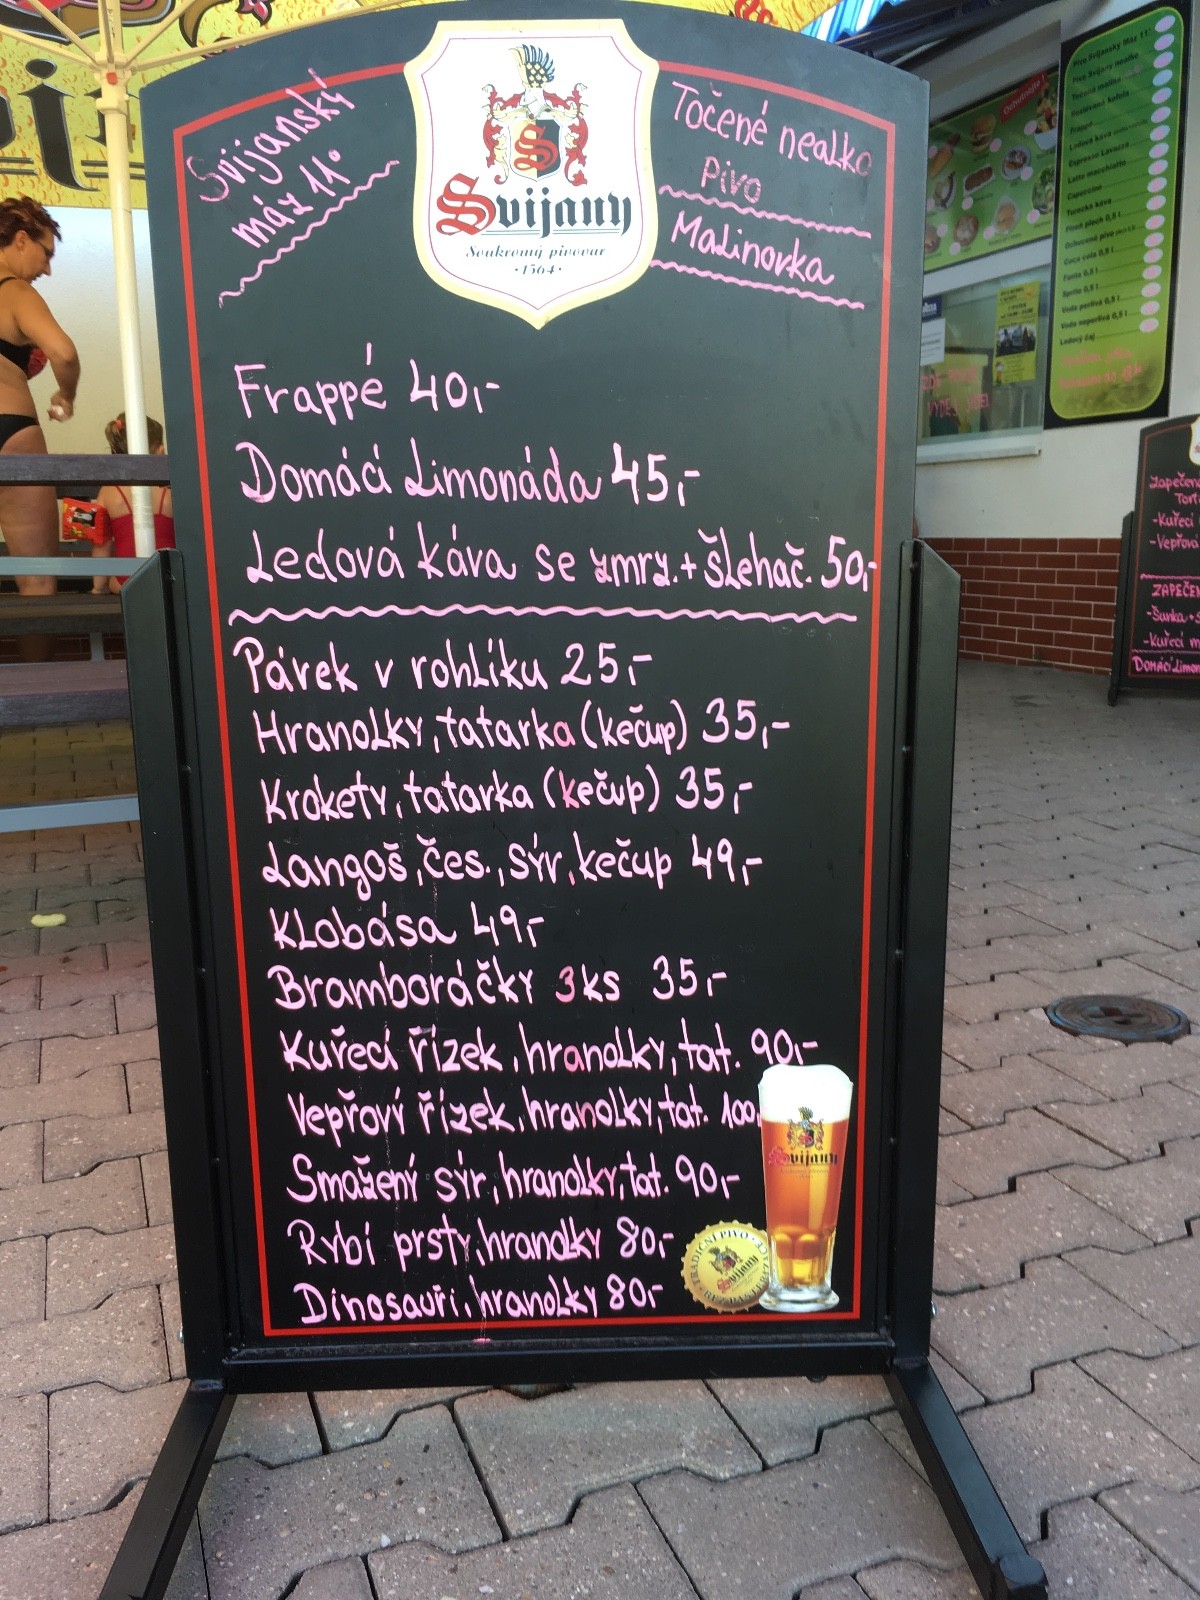 Svijanský
máz 11°
Svijany
Soukromý pivovar
·1564·
Točené nealko
Pivo
Malinovka
Frappé 40,-
Domácí Limonáda 45,-
Ledová káva se zmrz. + šlehač. 50,-
Párek v rohlíku 25,-
Hranolky, tatarka (kečup) 35,-
Krokety, tatarka (kečup) 35,-
Langoš, čes., sýr, kečup 49,-
Klobása 49,-
Bramboráčky 3 ks 35,-
Kuřecí řízek, hranolky, tat. 90,-
Vepřový řízek, hranolky, tat. 100,
Smažený sýr, hranolky, tat. 90,-
Rybí prsty, hranolky 80,-
Dinosauři, hranolky 80,-
Svijany
TRADIČNÍ PIVO
Svijany
Ochutnejte!
Pivo Svijanský Máz 11°
Pivo Svijany nealko
Točená malina
Točená kofola
Frappé
Ledová káva
Espresso Lavazza
Latte macchiatto
Capuccino
Turecká káva
Pivo plech 0,5 l
Ochucená pivo
Coca cola 0,5 l
Fanta 0,5 l
Sprite 0,5 l
Voda perlivá 0,5 l
Voda neperlivá 0,5 l
Ledový čaj
VÝDEJ JÍDEL
Zapečen
Tort
-Kuřecí
-Vepřov
ZAPEČEN
-Šunka +s
-Kuřecí m
Domácí Limon